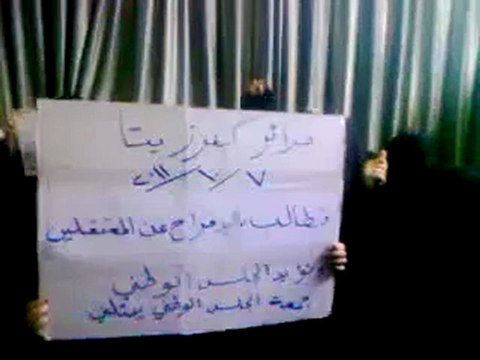 حرائر كفرزيتا
٢٠١١/١٠/٧
نطالب بالإفراج عن المعتقلين
ونؤيد المجلس الوطني
جمعة المجلس الوطني يمثلني